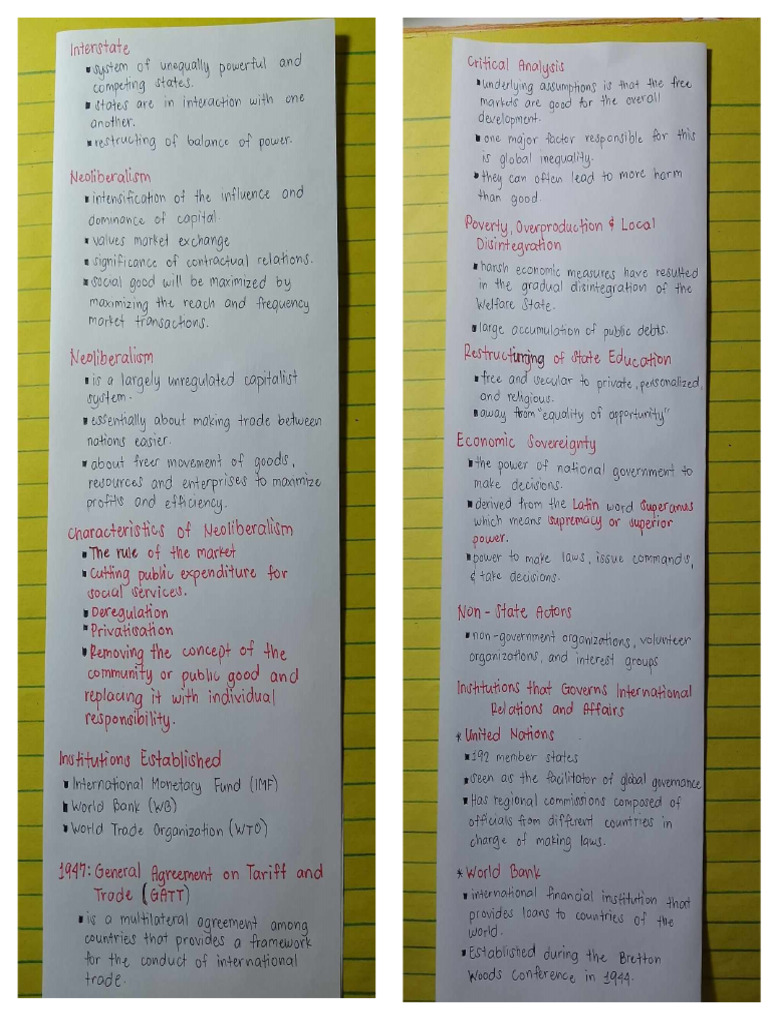 Interstate
▪system of unequally powerful and
competing states.
▪states are in interaction with one
another.
▪restructing of balance of power.
Neoliberalism
▪intensification of the influence and
dominance of capital.
▪values market exchange
▪significance of contractual relations.
▪social good will be maximized by
maximizing the reach and frequency
market transactions.
Neoliberalism
▪is a largely unregulated capitalist
system.
▪essentially about making trade between
nations easier.
▪about freer movement of goods,
resources and enterprises to maximize
profits and efficiency.
Characteristics of Neoliberalism
▪The rule of the market
▪Cutting public expenditure for
social services.
▪Deregulation
▪Privatisation
▪Removing the concept of the
community or public good and
replacing it with individual
responsibility.
Institutions Established
▪International Monetary Fund (IMF)
▪World Bank (WB)
▪World Trade Organization (WTO)
1947: General Agreement on Tariff and
Trade (GATT)
▪is a multilateral agreement among
countries that provides a framework
for the conduct of international
trade.
Critical Analysis
▪underlying assumptions is that the free
markets are good for the overall
development.
▪one major factor responsible for this
is global inequality.
▪they can often lead to more harm
than good.
Poverty, Overproduction & Local
Disintegration
▪harsh economic measures have resulted
in the gradual disintegration of the
Welfare State.
▪large accumulation of public debts.
Restructuring of State Education
▪free and secular to private, personalized,
and religious.
▪away from "equality of opportunity"
Economic Sovereignty
▪the power of national government to
make decisions.
▪derived from the Latin word Superanus
which means supremacy or superior
power.
▪power to make laws, issue commands,
& take decisions.
Non-State Actors
▪non-government organizations, volunteer
organizations, and interest groups
Institutions that Governs International
Relations and Affairs
* United Nations
▪192 member states
▪seen as the facilitator of global governance
▪Has regional commissions composed of
officials from different countries in
charge of making laws.
* World Bank
▪international financial institution that
provides loans to countries of the
world.
▪Established during the Bretton
Woods Conference in 1944.